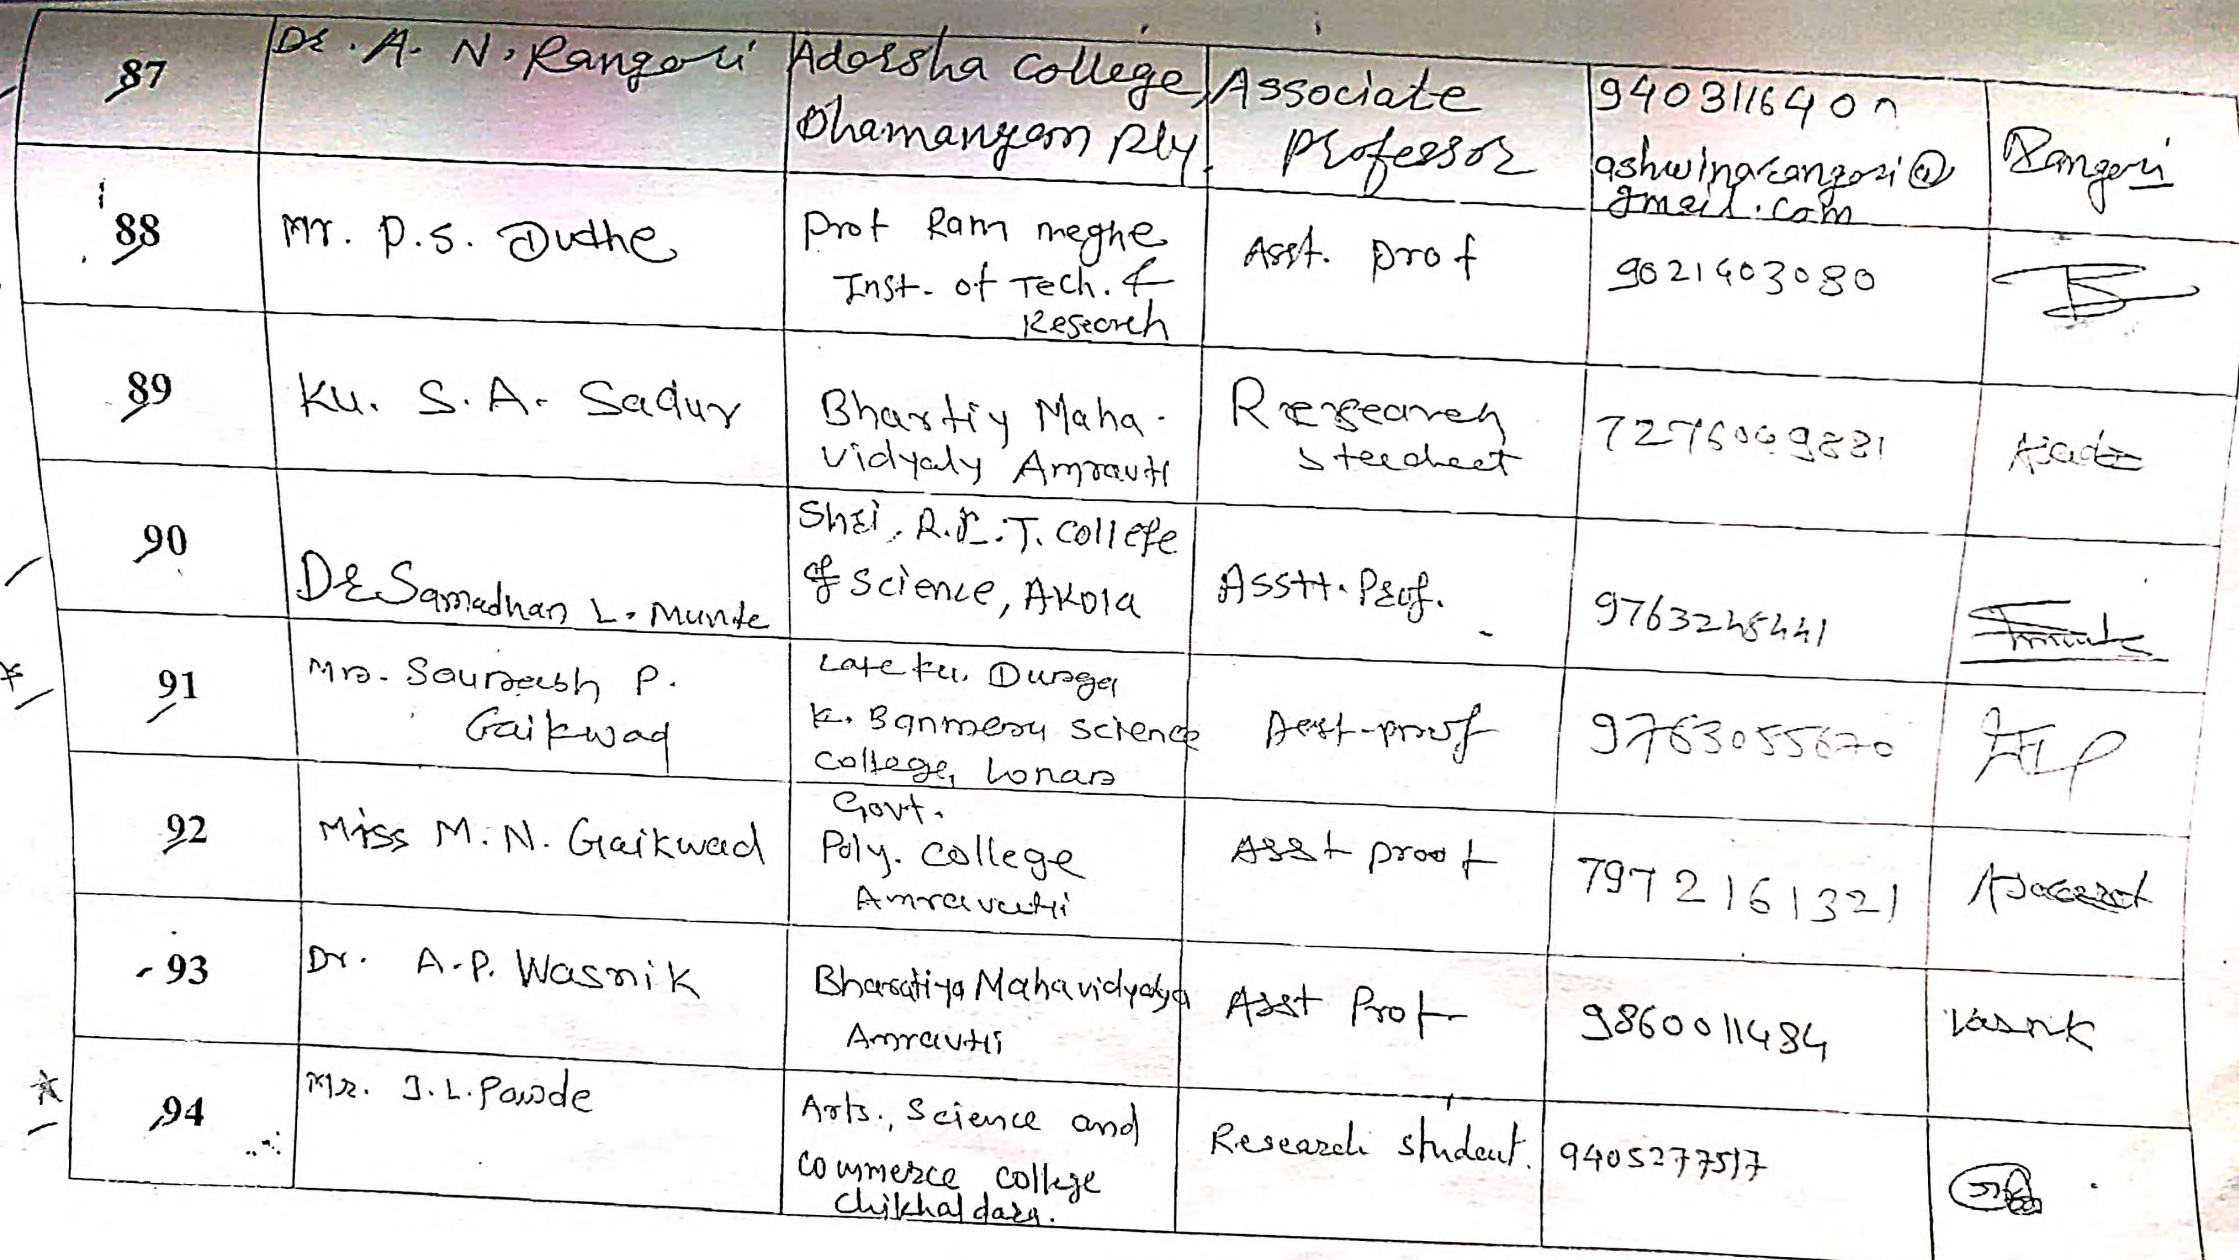 87
Dr. A. N. Rangari
Adarsha College,
Dhamangaon Rly.
Associate
Professor
ashwinarangari@
gmail.com
Rangari
88
Mr. P.S. Dudhe
Prof Ram meghe
Inst. of Tech. &
Research
Asst. prof
9021403080
89
Ku. S. A. Sadur
Bhartiy Maha-
vidyaly Amravti
Research
90
Dr Samadhan L. Munde
Shri. R.L.T. College
of Science, Akola
Asstt. Prof.
9763245441
91
Mr. Saurabh P.
Gaikwad
Late ku. Durga
K. Banmeru Science
College, Lonar
Asst-prof
9763055670
92
Miss M. N. Gaikwad
Govt.
Poly. College
Amravati
Asst proof
7972161321
93
Dr. A.P. Wasnik
Bharatiya Mahavidyalya
Amravti
Asst Prof
9860011484
Wasnik
94
Mr. J. L. Pawde
Arts., Science and
commerce college
Chikhaldara.
Research student.
9405277517